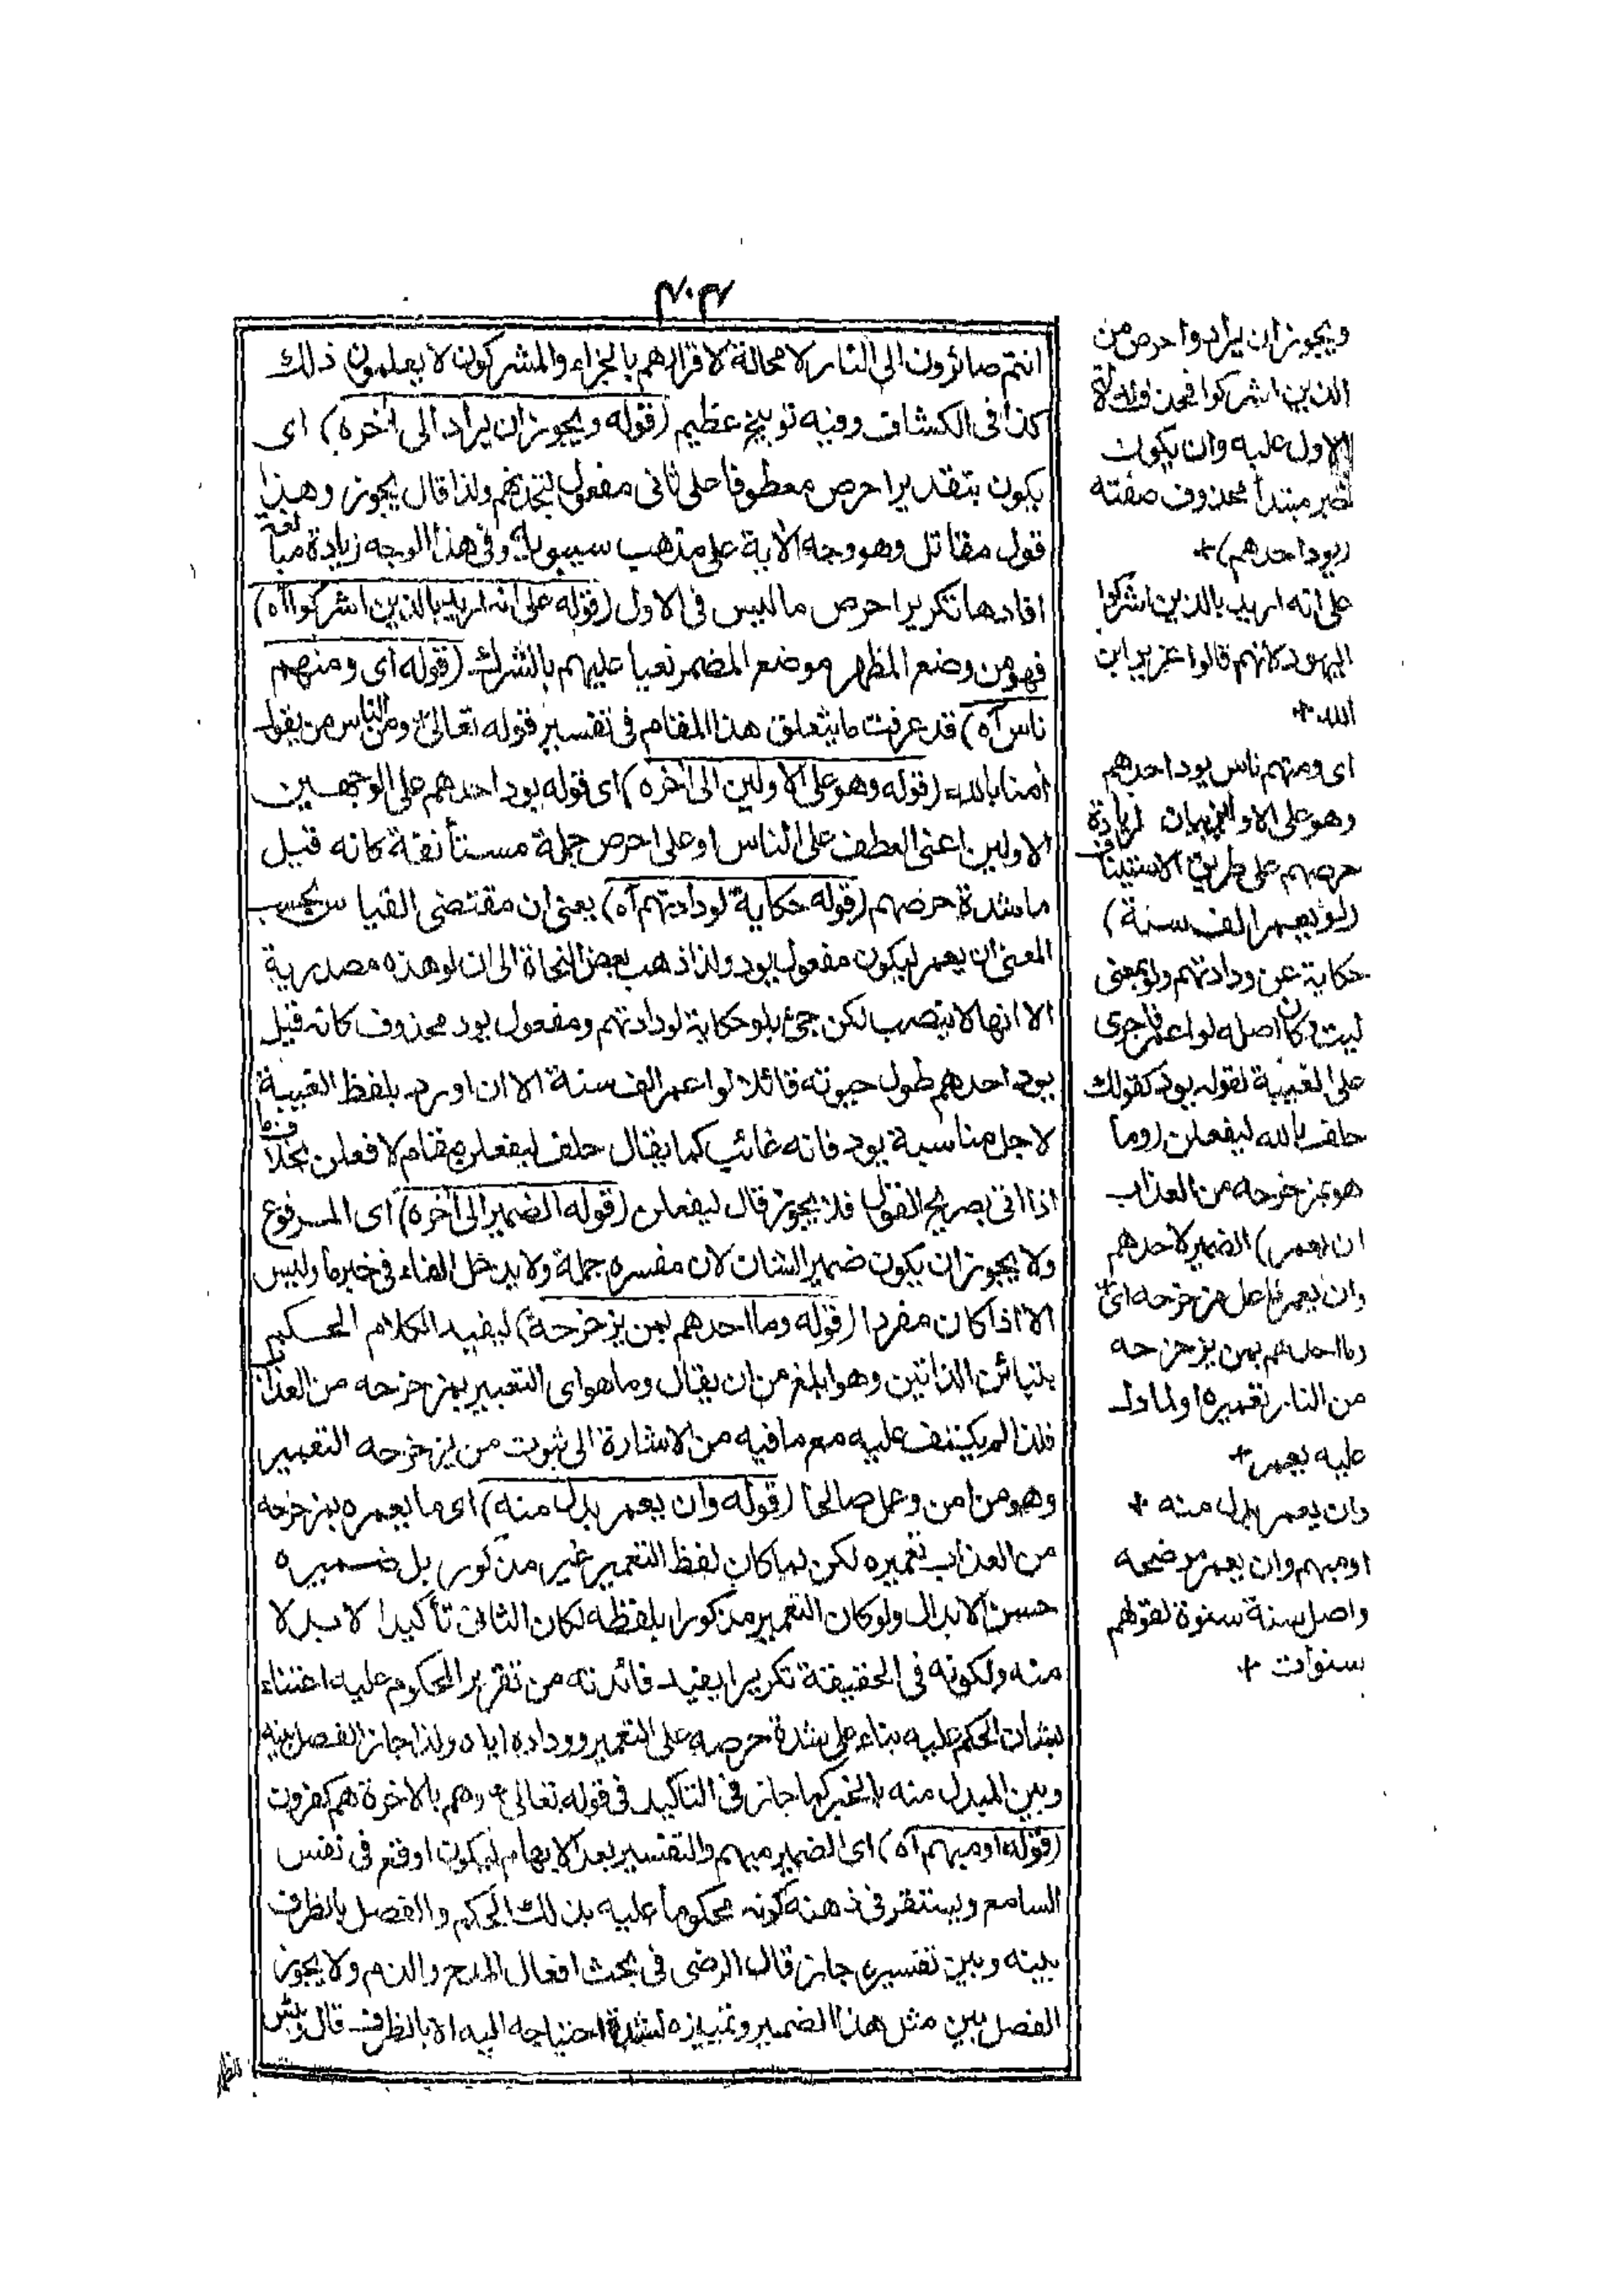 ٣٠٣
انتم صائرون الى النار لا محالة لاقرارهم بالجزاء والمشركون لا يعلمون ذلك
كذا فى الكشاف وفيه توبيخ عظيم (قوله ويجوز ان يراد الى اٰخره) اى
يكون بتقدير احرص معطوفا على ثانى مفعولى لتجدنهم ولذا قال يجوز وهذا
قول مقاتل وهو وجه الاٰية على مذهب سيبويه وفى هذا الوجه زيادة مبالغة
افادها تكرير احرص ما ليس فى الاول (قوله على انه اريد بالذين اشركوا اٰه)
فهو من وضع المظهر موضع المضمر نعيا عليهم بالشرك (قوله اى ومنهم
ناس اٰه) قد عرفت ما يتعلق هذا المقام فى تفسير قوله تعالىٰ ومن الناس من يقول
اٰمنا بالله (قوله وهو على الاولين الى اٰخره) اى قوله يود احدهم على الوجهين
الاولين اعنى العطف على الناس او على احرص جملة مستأنفة كانه قيل
ما شدة حرصهم (قوله حكاية لودادتهم اٰه) يعنى ان مقتضى القياس بحسب
المعنى ان يعمر ليكون مفعول يود ولذا ذهب بعض النحاة الى ان لو هذه مصدرية
الا انها لا ينصب لكن جىء بلو حكاية لودادتهم ومفعول يود محذوف كانه قيل
يود احدهم طول حيوته قائلا لو اعمر الف سنة الا ان اورد بلفظ الغيبة
لاجل مناسبة يود فانه غائب كما يقال حلف ليفعلن مقام لافعلن بخلاف ما
اذا اتى بصريح القول فلا يجوز قال ليفعلن (قوله الضمير الى اٰخره) اى المرفوع
ولا يجوز ان يكون ضمير الشان لان مفسره جملة ولا يدخل الفاء فى خبرها وليس
الا اذا كان مفردا (قوله وما احدهم بمن يزحزحه) ليفيد الكلام الحكم
بتبائن الذاتين وهو ابلغ من ان يقال وما هو اى التعبير بمزحزحه من العذاب
فلذا لم يكتف عليه مع ما فيه من الاشارة الى ثبوت من يزحزحه التعبير
وهو من اٰمن وعمل صالحا (قوله وان يعمر بدل منه) اى ما يعمره بمزحزحه
من العذاب تعميره لكن لما كان لفظ التعمير غير مذكور بل ضميره
حسن الابدال ولو كان التعمير مذكورا بلفظه لكان الثانى تأكيدا لا بدلا
منه ولكونه فى الحقيقة تكريرا يفيد فائدته من تقرير المحكوم عليه اعتناء
بشان الحكم عليه بناء على شدة حرصه على التعمير ووداده اياه ولذا جاز الفصل بينه
وبين المبدل منه بالخبر كما جاز فى التاكيد فى قوله تعالىٰ وهم بالاٰخرة هم كٰفرون
(قوله او مبهم اٰه) اى الضمير مبهم والتفسير بعد الابهام ليكون اوقع فى نفس
السامع ويستقر فى ذهنه كونه محكوما عليه بذلك الحكم والفصل بالظرف
بينه وبين تفسيره جائز قال الرضى فى بحث افعال المدح والذم ولا يجوز
الفصل بين مثل هذا الضمير وتمييزه لشدة احتياجه اليه الا بالظرف قال وبئس
ويجوز ان يراد واحرص من
الذين اشركوا فحذف لدلالة
الاول عليه وان يكون
خبر مبتدأ محذوف صفته
(يود احدهم) +
على انه اريد بالذين اشركوا
اليهود لانهم قالوا عزير ابن
الله +
اى ومنهم ناس يود احدهم
وهو على الاولين بيان لزيادة
حرصهم على طريق الاستيناف
(لو يعمر الف سنة)
حكاية عن ودادتهم ولو بمعنى
ليت وكان اصله لو اعمر فاجرى
على الغيبة لقوله يود كقولك
حلف بالله ليفعلن (وما
هو بمزحزحه من العذاب
ان يعمر) الضمير لاحدهم
وان يعمر فاعل مزحزحه اى
وما احدهم بمن يزحزحه
من النار تعميره او لما دل
عليه يعمر +
وان يعمر بدل منه +
او مبهم وان يعمر موضحه
واصل سنة سنوة لقولهم
سنوات +